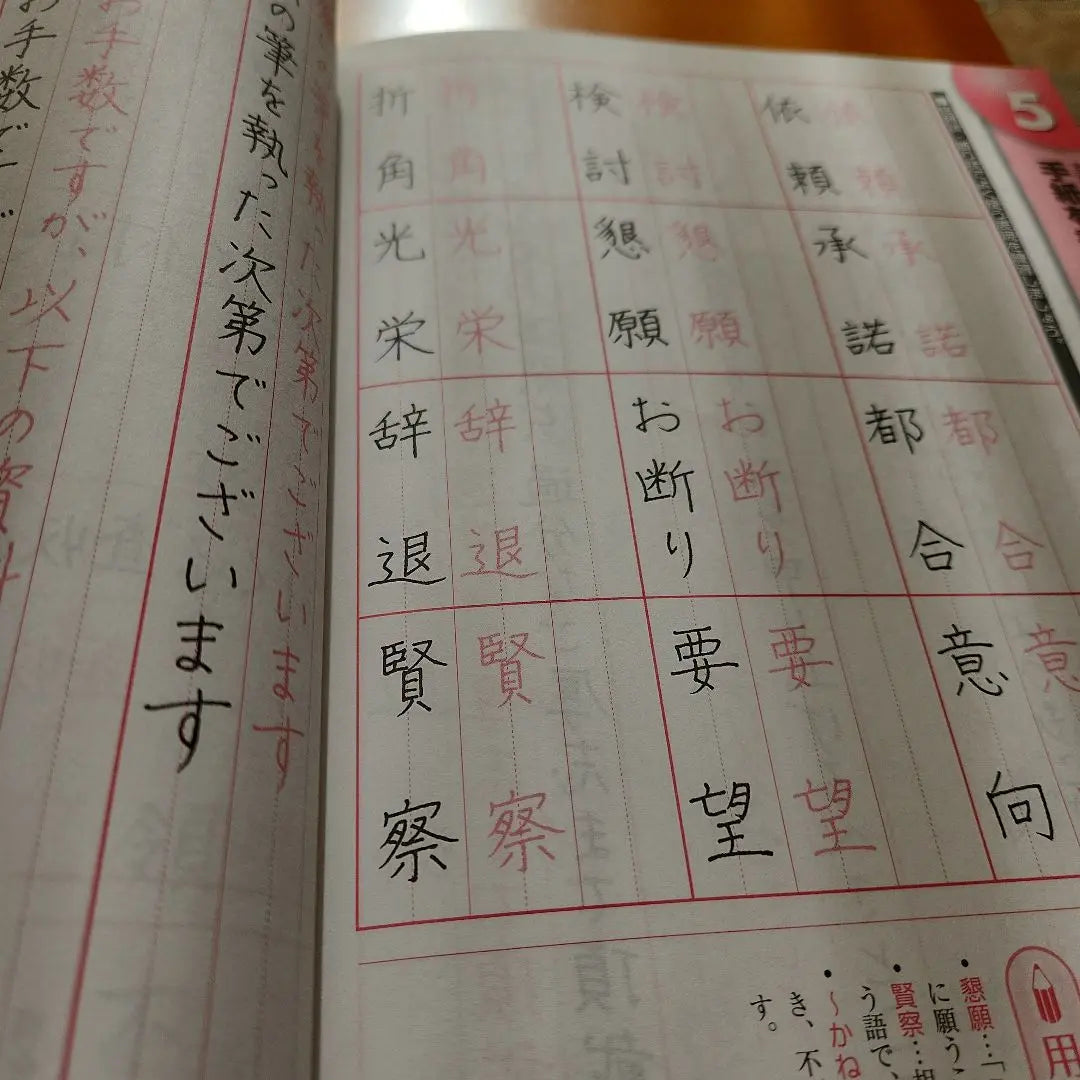 5
依頼 依頼
承諾 承諾
都合 都合
意向 意
検討 検討
懇願 懇願
お断り お断り
要望 要望
折角 折角
光栄 光栄
辞退 辞退
賢察 賢察
用
・懇願…「
に願う
・賢察…
う語で、
・〜かね
き、不
す。
の筆を執った次第でございます
た次第でございます
お手数ですが、以下の資料
お手数でご